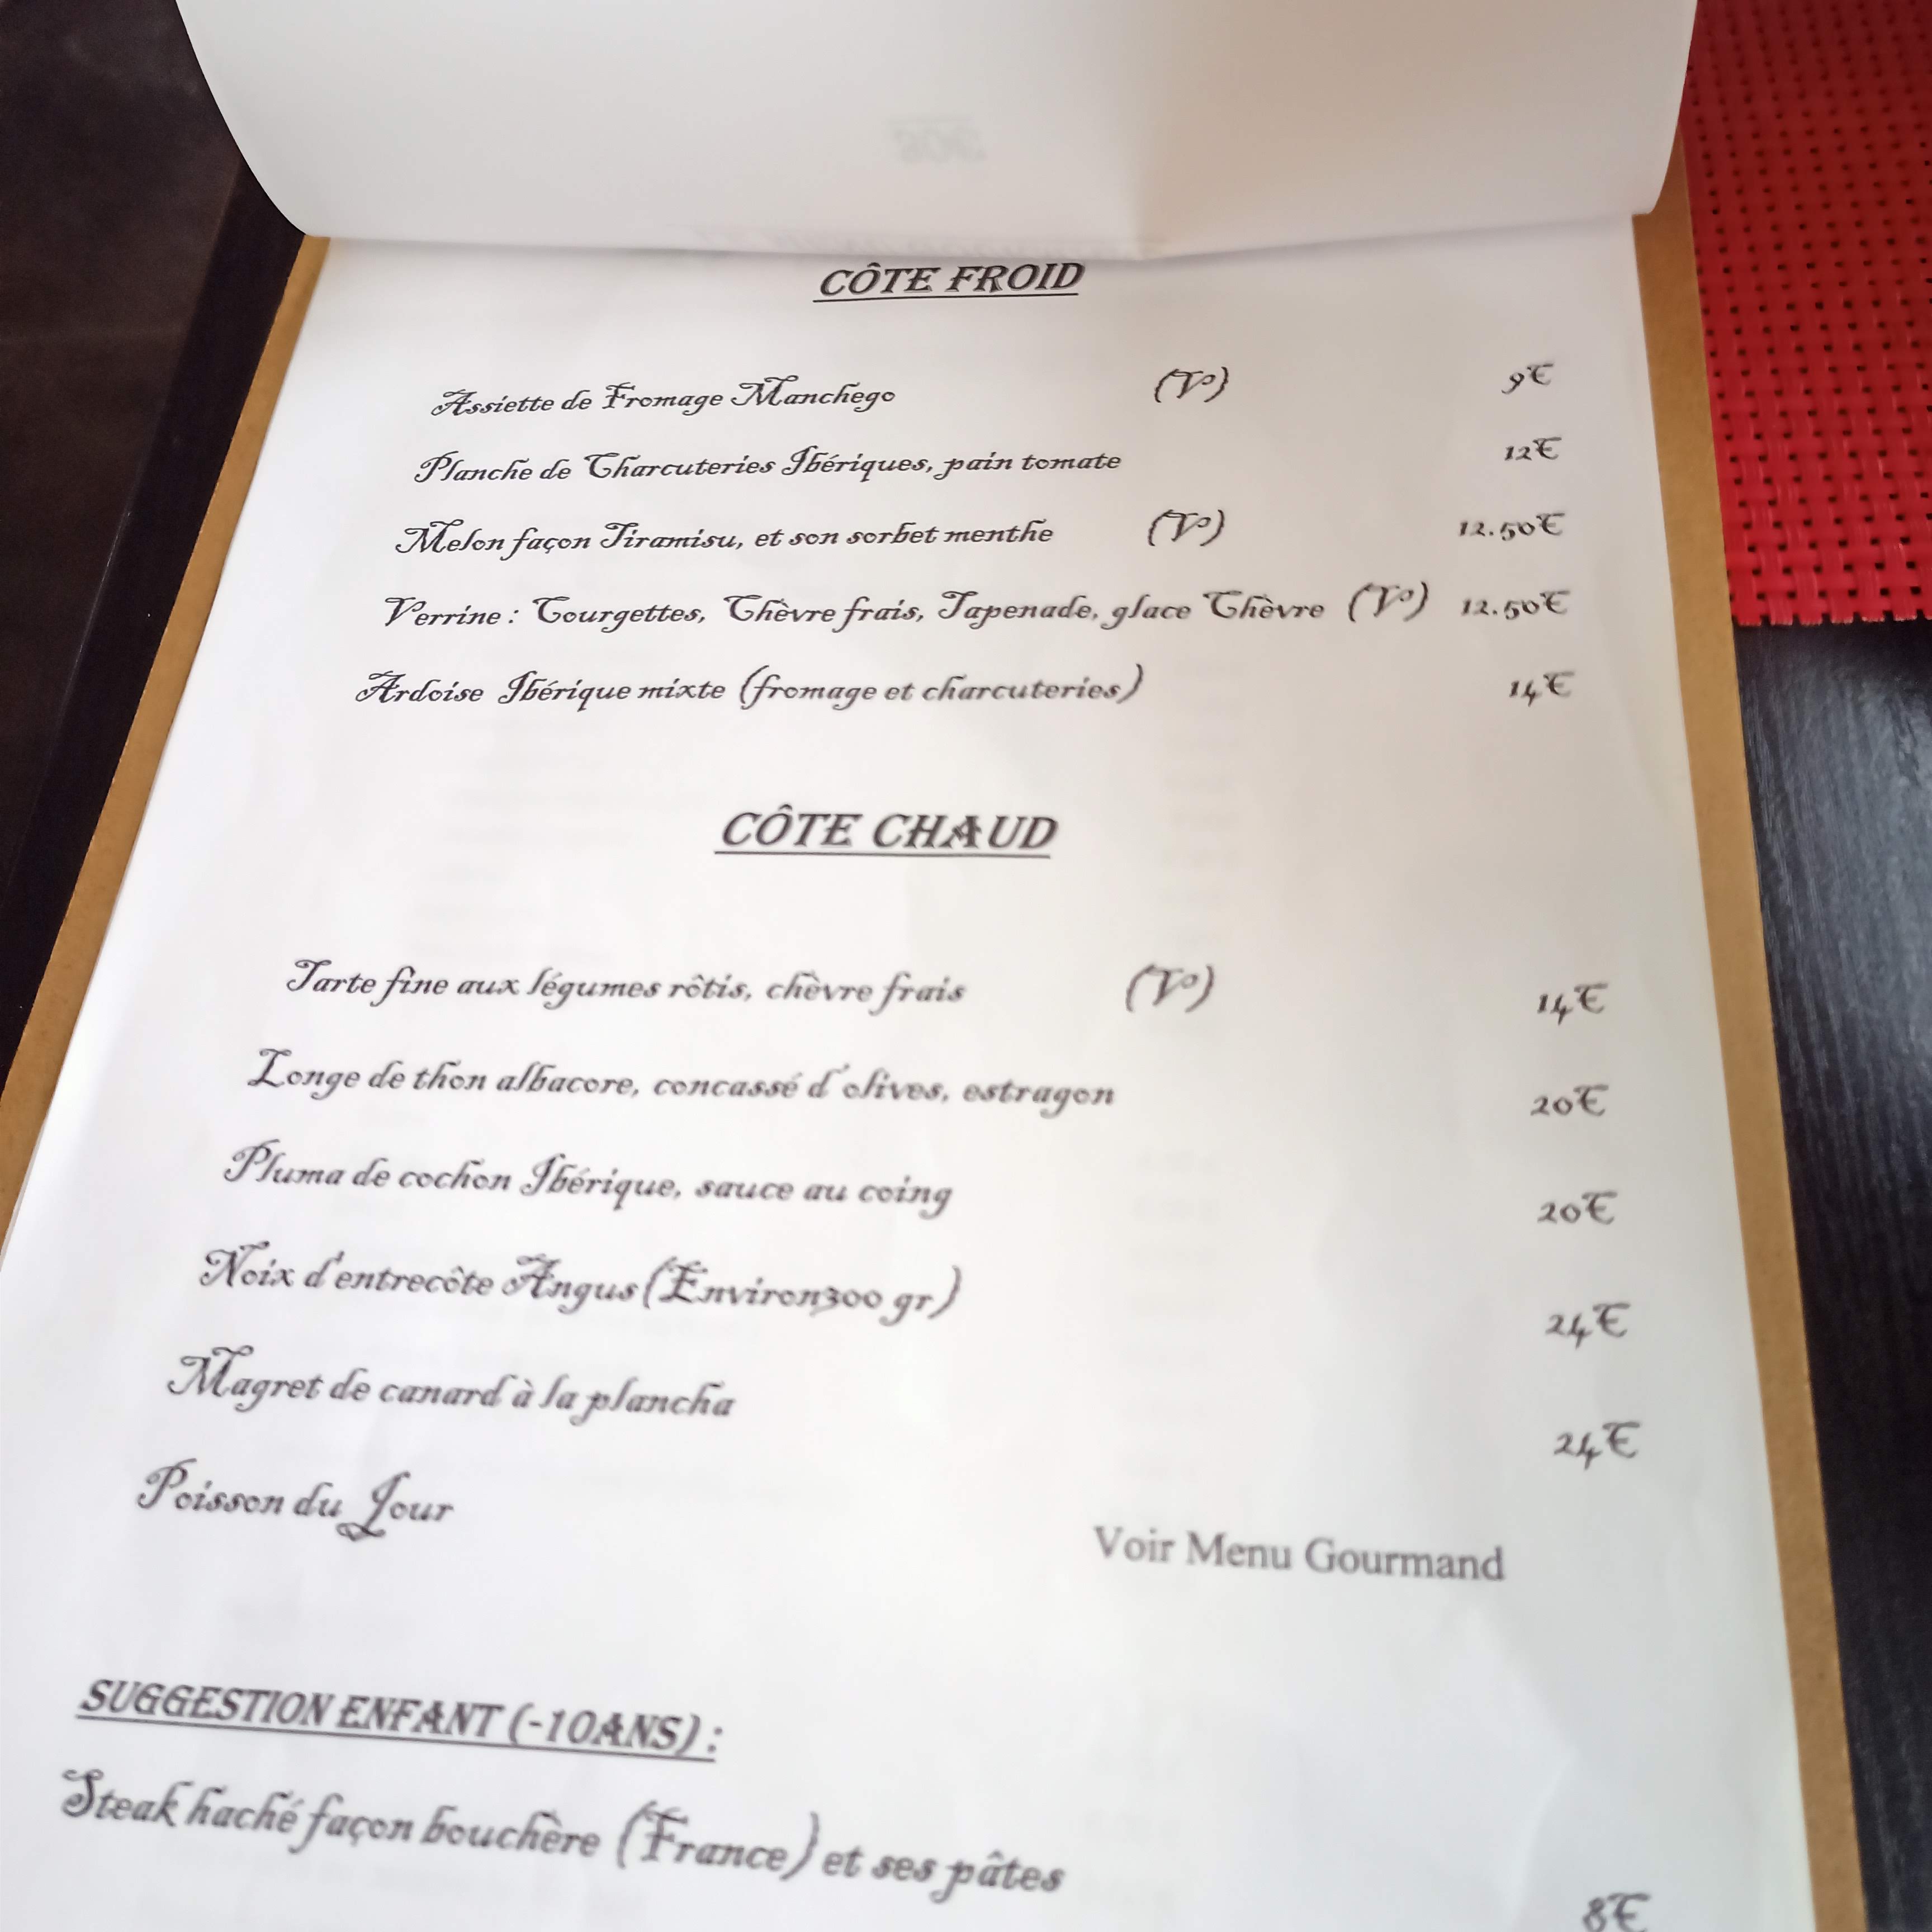 CÔTE FROID
Assiette de Fromage Manchego (V) 9€
Planche de Charcuteries Ibériques, pain tomate 12€
Melon façon Tiramisu, et son sorbet menthe (V) 12.50€
Verrine : Courgettes, Chèvre frais, Tapenade, glace Chèvre (V) 12.50€
Ardoise Ibérique mixte (fromage et charcuteries) 14€
CÔTE CHAUD
Tarte fine aux légumes rôtis, chèvre frais (V) 14€
Longe de thon albacore, concassé d'olives, estragon 20€
Pluma de cochon Ibérique, sauce au coing 20€
Noix d'entrecôte Angus (Environ300 gr) 24€
Magret de canard à la plancha 24€
Poisson du Jour Voir Menu Gourmand
SUGGESTION ENFANT (-10ANS) :
Steak haché façon bouchère (France) et ses pâtes 8€